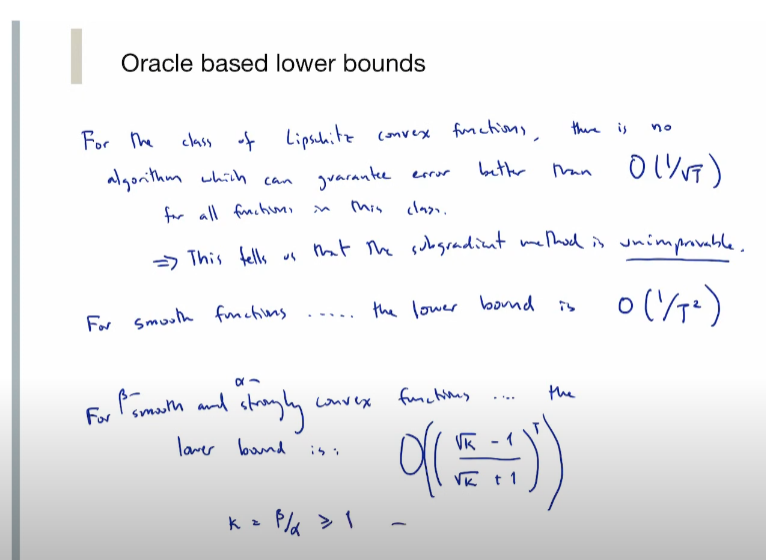 Oracle based lower bounds
For the class of Lipschitz convex functions, there is no
algorithm which can guarantee error better than O(1/√T)
for all functions in this class.
⇒ This tells us that the subgradient method is unimprovable.
For smooth functions ..... the lower bound is O(1/T²)
For β-smooth and α-strongly convex functions .... the
lower bound is: O(((√K - 1)/(√K + 1))^T)
K = β/α ≥ 1 –